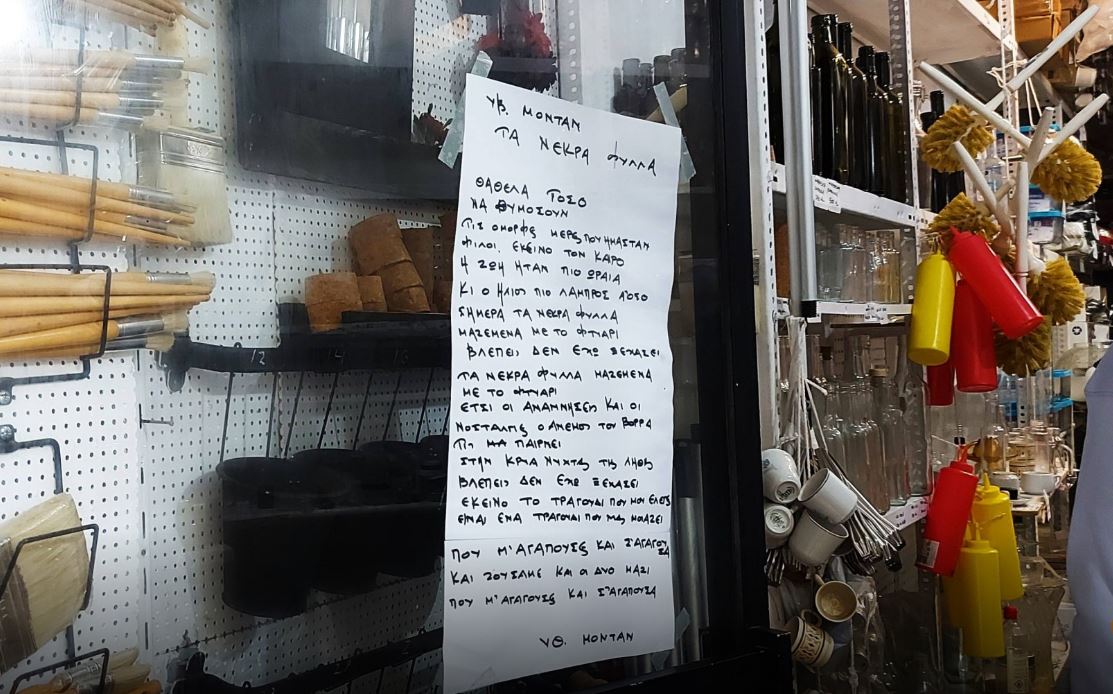 ΥΒ. ΜΟΝΤΑΝ
ΤΑ ΝΕΚΡΑ ΦΥΛΛΑ
ΘΑΘΕΛΑ ΤΟΣΟ
ΝΑ ΘΥΜΟΣΟΥΝ
ΤΙΣ ΟΜΟΡΦΕΣ ΜΕΡΕΣ ΠΟΥ ΗΜΑΣΤΑΝ
ΦΙΛΟΙ. ΕΚΕΙΝΟ ΤΟΝ ΚΑΡΟ
Η ΖΩΗ ΗΤΑΝ ΠΙΟ ΩΡΑΙΑ
ΚΙ Ο ΗΛΙΟΣ ΠΙΟ ΛΑΜΠΡΟΣ
ΣΗΜΕΡΑ ΤΑ ΝΕΚΡΑ ΦΥΛΛΑ
ΜΑΖΕΜΕΝΑ ΜΕ ΤΟ ΦΤΙΑΡΙ
ΒΛΕΠΕΙΣ ΔΕΝ ΕΧΩ ΞΕΧΑΣΕΙ
ΤΑ ΝΕΚΡΑ ΦΥΛΛΑ ΜΑΖΕΜΕΝΑ
ΜΕ ΤΟ ΦΤΥΑΡΙ
ΕΤΣΙ ΟΙ ΑΝΑΜΝΗΣΕΙΣ ΚΑΙ ΟΙ
ΝΟΣΤΑΛΓΙΕΣ Ο ΑΝΕΜΟΣ ΤΟΥ ΒΟΡΡΑ
ΤΙΣ ΠΑΙΡΝΕΙ
ΣΤΗΝ ΚΡΥΑ ΝΥΧΤΑ ΤΗΣ ΛΗΘΗΣ
ΒΛΕΠΕΙΣ ΔΕΝ ΕΧΩ ΞΕΧΑΣΕΙ
ΕΚΕΙΝΟ ΤΟ ΤΡΑΓΟΥΔΙ ΠΟΥ ΜΟΥ ΕΛΕΓΕΣ
ΕΙΝΑΙ ΕΝΑ ΤΡΑΓΟΥΔΙ ΠΟΥ ΜΑΣ ΜΟΙΑΖΕΙ
ΠΟΥ Μ'ΑΓΑΠΟΥΣΕΣ ΚΑΙ Σ'ΑΓΑΠΟΥΣΑ
ΚΑΙ ΖΟΥΣΑΜΕ ΚΑΙ ΟΙ ΔΥΟ ΜΑΖΙ
ΠΟΥ Μ'ΑΓΑΠΟΥΣΕΣ ΚΑΙ Σ'ΑΓΑΠΟΥΣΑ
ΥΘ. ΜΟΝΤΑΝ
12 14 16